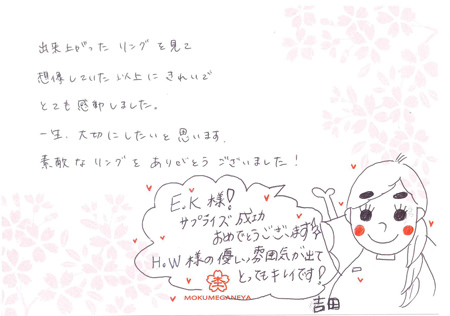 出来上がった リングを見て
想像していた以上に きれいで
とても 感動しました。
一生、大切にしたいと 思います。
素敵な リングを ありがとう ございました！
E.K 様！
サプライズ 成功
おめでとうございます
H.W 様の 優しい雰囲気が出て
とってもキレイです！
MOKUMEGANEYA
吉田